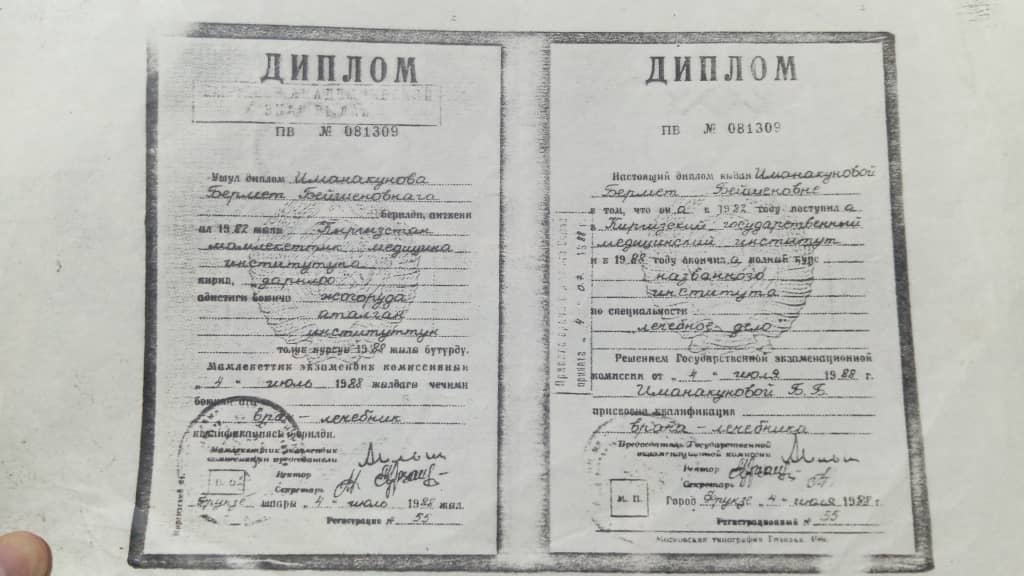 ДИПЛОМ
ПВ № 081309
Ушул диплом Иманакунова
Бермет Бейшеновнага
берилди, анткени
ал 1982 жылы Кыргызстан
мамлекеттик медицина
институтуна
кирип, "дарылоо"
адистиги боюнча жогоруда
аталган
институттун
толук курсун 1988 жылы бүтүрдү.
Мамлекеттик экзамендик комиссиянын
"4" июль 1988 жылдагы чечими
боюнча ага
врач-лечебник
квалификациясы берилди.
Мамлекеттик экзамендик
комиссиянын председатели
Ректор
Секретарь
Фрунзе шаары "4" июль 1988 жыл.
Регистрация № 55
ДИПЛОМ
ПВ № 081309
Настоящий диплом выдан Иманакуновой
Бермет Бейшеновне
в том, что она в 1982 году поступила
в Киргизский государственный
медицинский институт
и в 1988 году окончила полный курс
названного
института
по специальности
"лечебное дело"
Решением Государственной экзаменационной
комиссии от "4" июля 1988 г.
Иманакуновой Б. Б.
присвоена квалификация
врача-лечебника
Председатель Государственной
экзаменационной комиссии
Ректор
Секретарь
М. П.
Город Фрунзе "4" июля 1988 г.
Регистрационный № 55
Московская типография Гознака.